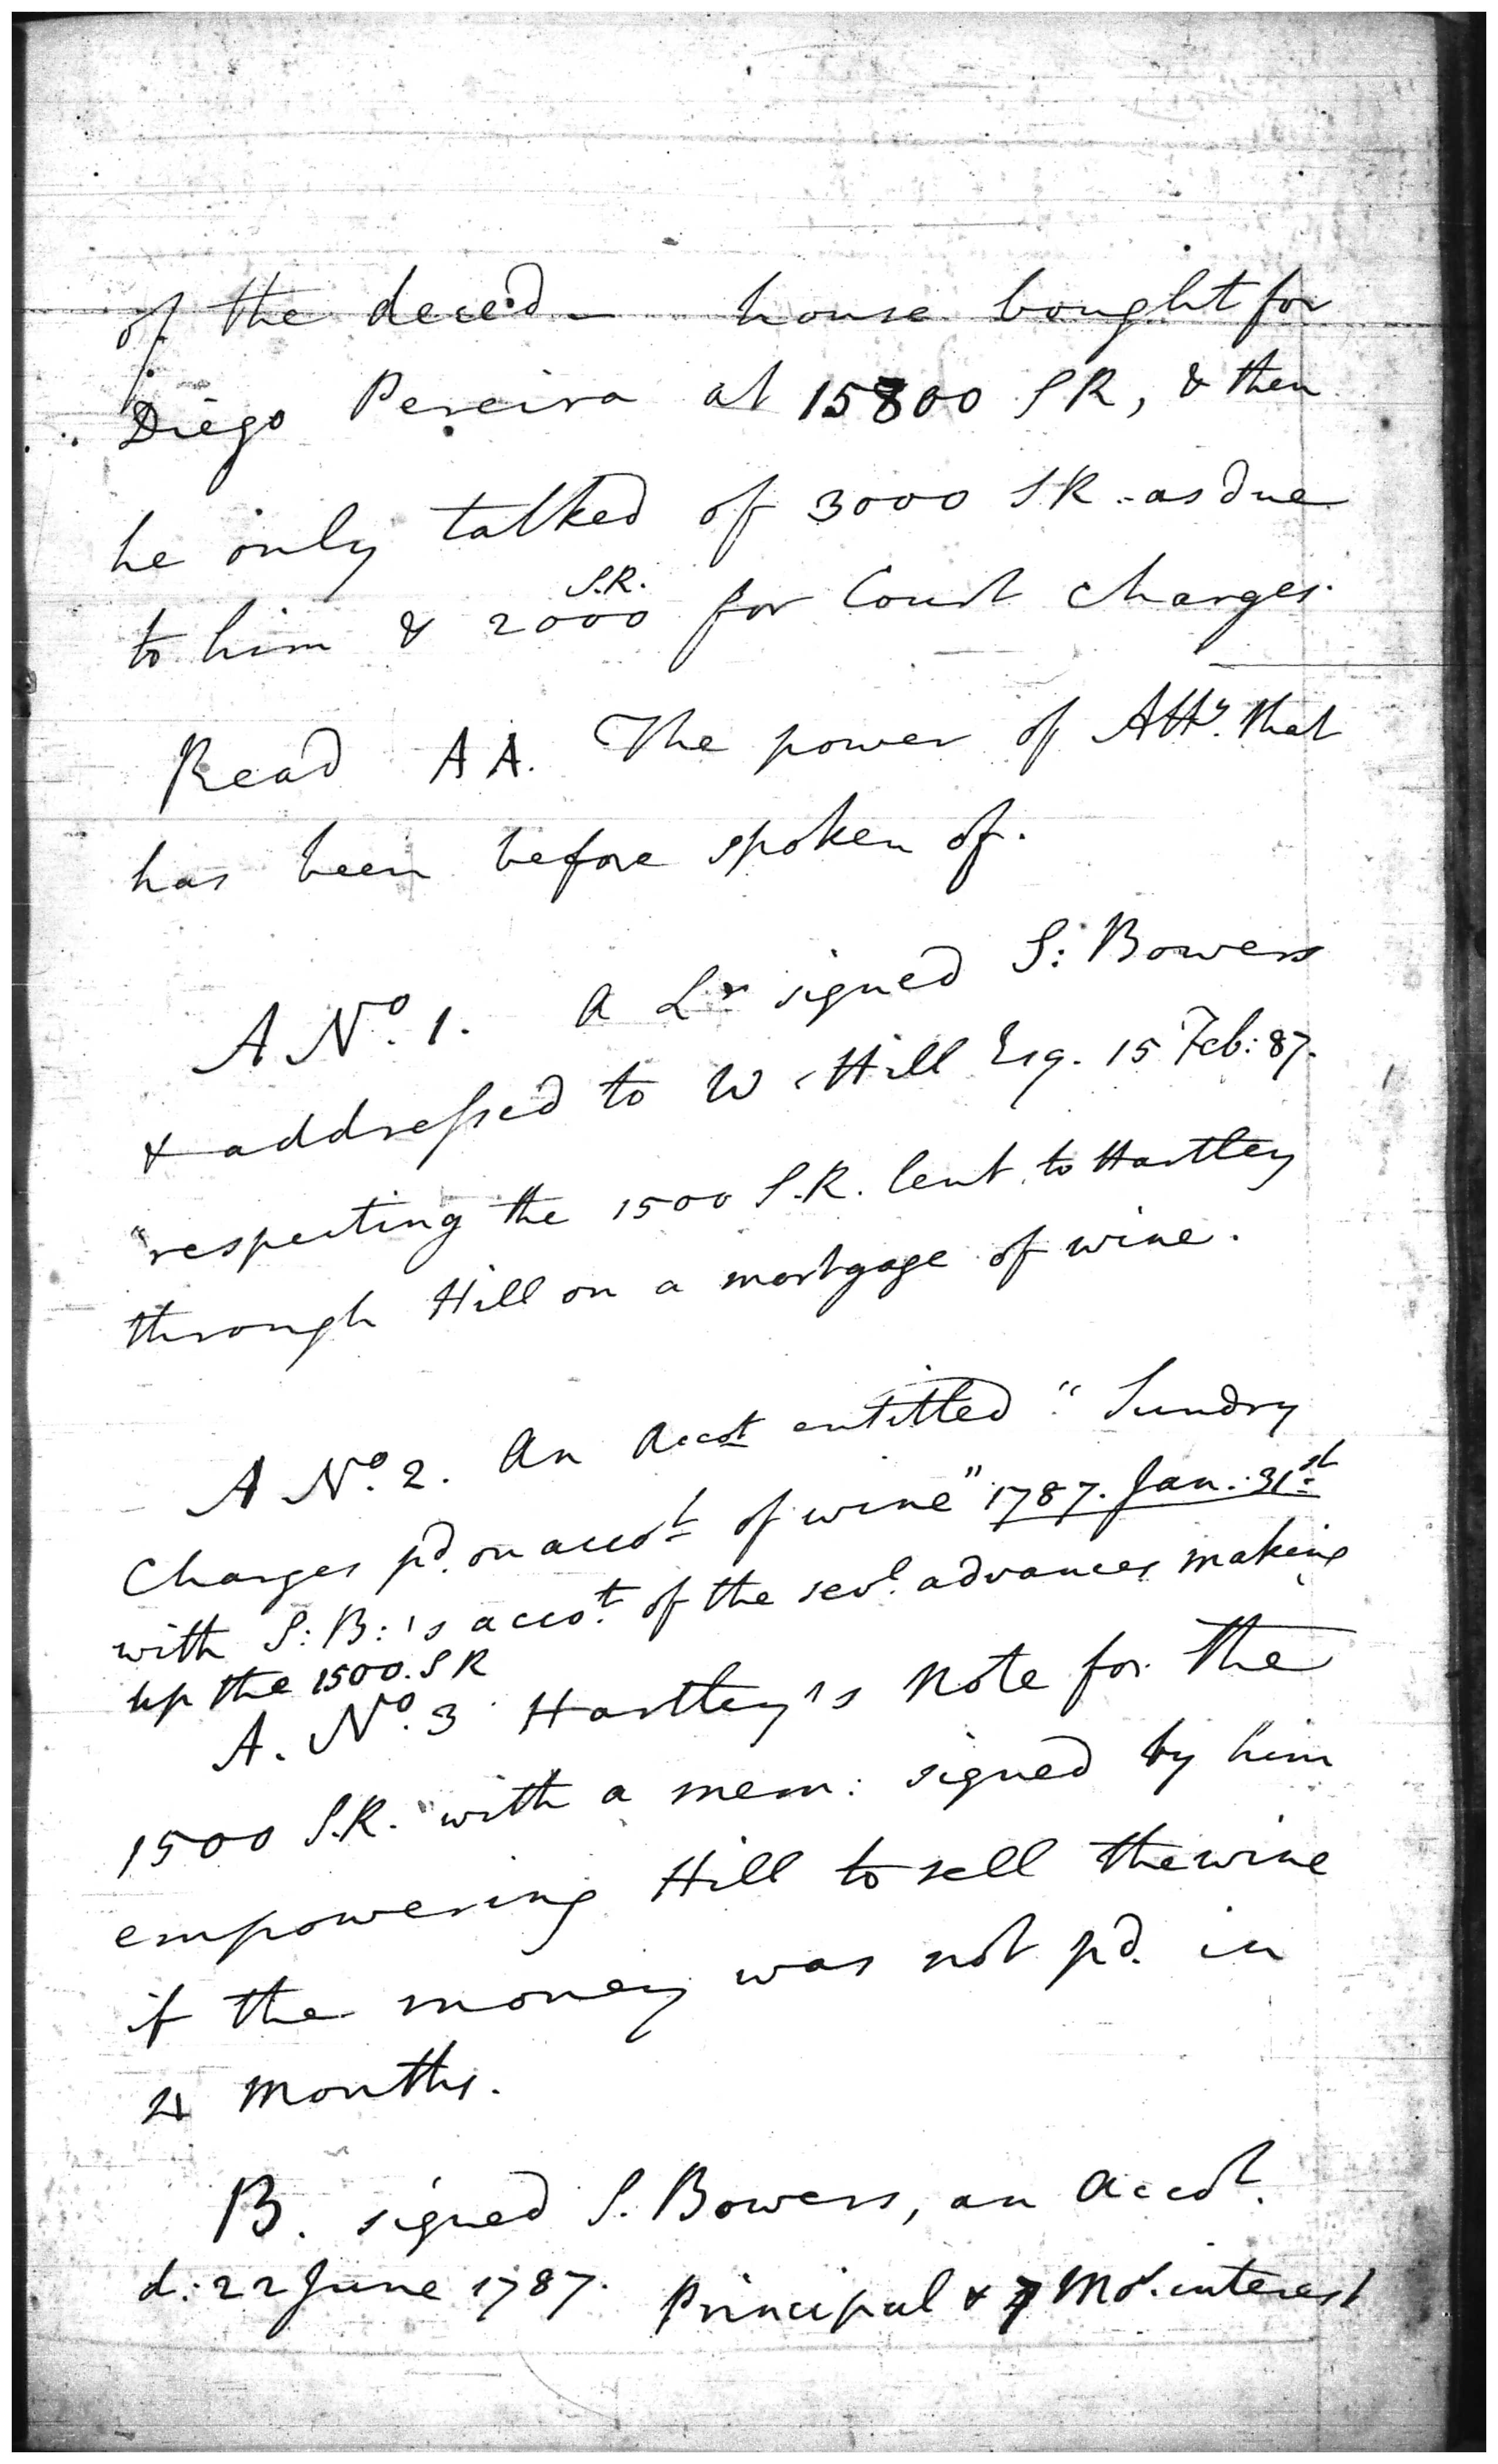 of the deced – house bought for
Diego Pereira at 15800 SR, & then
he only talked of 3000 SR. as due
S.R.
to him & 2000 for Court charges.
Read AA. The power of Atty. that
has been before spoken of.
A No. 1. A Lr signed S: Bowers
& addressed to W. Hill Esq. 15 Feb: 87.
respecting the 1500 S.R. lent to Hartley
through Hill on a mortgage of wine.
A No. 2. An Accot entitled "Sundry
Charges pd. on accot of wine" 1787. Jan: 31st
with S: B:'s accot. of the sevl. advances making
up the 1500. SR
A. No. 3 Hartley's Note for the
1500 S.R. with a mem: signed by him
empowering Hill to sell the wine
if the money was not pd. in
4 months.
B. signed S. Bowers, an Accot.
d: 22 June 1787. Principal & 7 Mo. interest